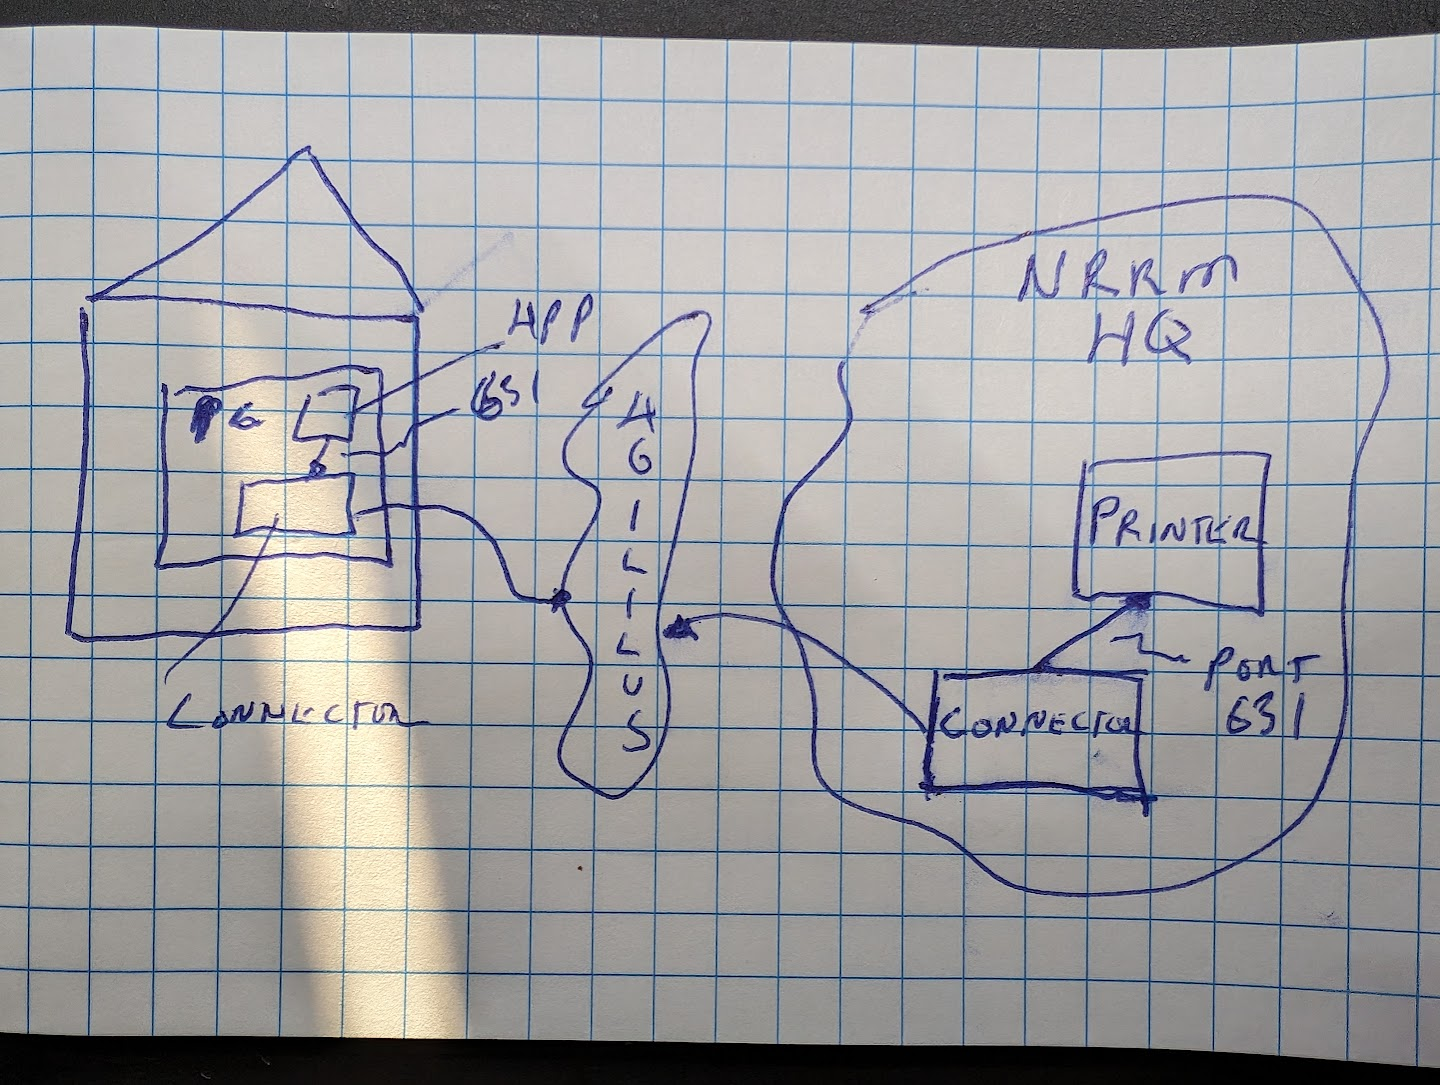 APP
631
PC
CONNECTOR
AGILILUS
NRRM
HQ
PRINTER
PORT
631
CONNECTOR